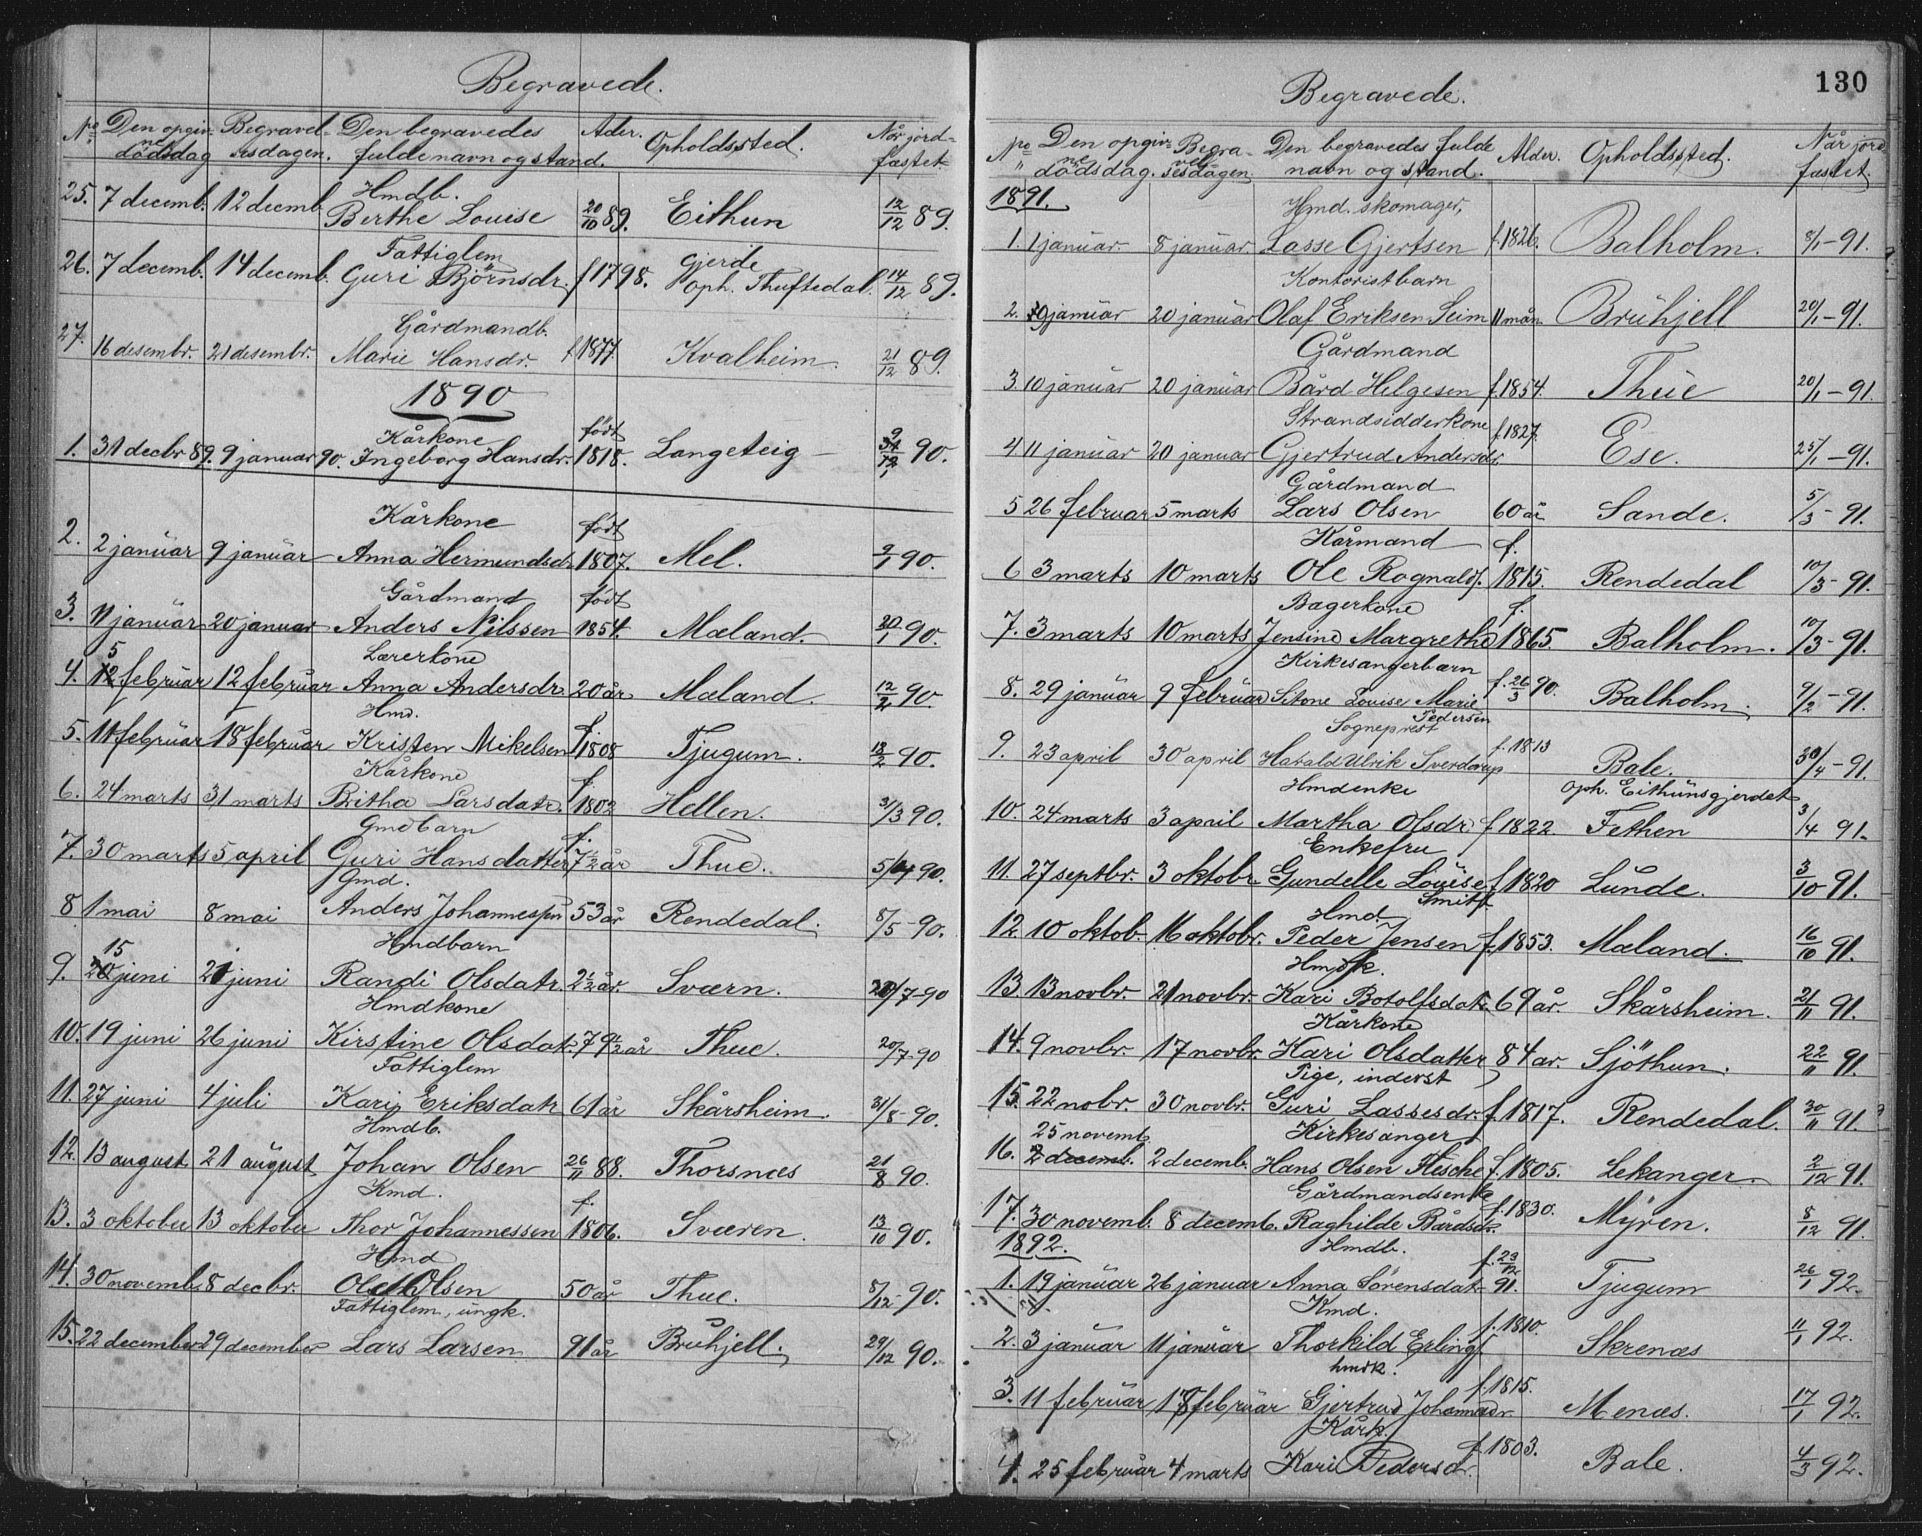 Begravede.
No. Den opgivne dödsdag Begravelsesdagen. Den begravedes fulde navn og stand. Ader. Opholdssted. Når jordfæstet.
Hmdb.
25. 7 decemb. 12 decemb. Berthe Louise 20/10 89. Eithun 12/12 89.
Fattiglem
26. 7 decemb. 14 decemb. Guri Björnsdr. f 1798. Gjerde oph. Thuftedal. 14/12 89.
Gårdmandb.
27. 16 desembr. 21 desembr. Marie Hansdr. f 1877. Kvalheim. 21/12 89.
1890
Kårkone født
1. 31 decbr 89. 9 januar 90. Ingeborg Hansdr. 1818. Langeteig 9/1 90.
Kårkone født
2. 2 januar 9 januar Anna Hermundsdr. 1807. Mel. 9/1 90.
Gårdmand født
3. 11 januar 20 januar Anders Nilssen 1854. Mæland. 20/1 90.
Lærerkone
4. 5 februar 12 februar Anna Andersdr. 20 år Mæland. 12/2 90.
Hmd.
5. 11 februar 18 februar Kristen Mikelsen f 1808 Tjugum. 18/2 90.
Kårkone
6. 24 marts 31 marts Britha Larsdatr. f 1802 Hellen. 31/3 90.
Gmdbarn
7. 30 marts 5 april Guri Hansdatter 7½ år Thue. 5/4 90.
Gmd.
8 1 mai 8 mai Anders Johannessen 53 år Rendedal. 8/5-90.
Hmdbarn
9. 15 juni 21 juni Randi Olsdatr. 2½ år. Sværn. 20/7-90
Hmdkone
10. 19 juni 26 juni Kirstine Olsdat. 79½ år Thue. 20/7-90
Fattiglem
11. 27 juni 4 juli Kari Eriksdatr 61 år Skårsheim. 31/8-90.
Hmdb.
12. 13 august 21 august Johan Olsen 26/11 88. Thorsnæs 21/8 90.
Kmd. f.
13. 3 oktober 13 oktober Thor Johannessen 1806. Sværen. 13/10 90.
Hmd
14. 30 novemb. 8 decbr. Ole Olsen 50 år Thue. 8/12-90.
Fattiglem, ungk.
15. 22 december 29 december Lars Larsen 91 år Brühjell. 29/12 90.
130
Begravede.
No. Den opgivne dödsdag. Begravelsesdagen Den begravedes fulde navn og stand. Alder. Opholdssted. Når jordfæstet.
1891. Hmd. skomager,
1. 1 januar 8 januar. Lasse Gjertsen f. 1826. Balholm. 8/1-91.
Kontoristbarn
2. 9 januar 20 januar Olaf Eriksen Seim 11 mån. Brühjell 20/1-91.
Gårdmand
3 10 januar 20 januar Bård Helgesen f. 1854. Thue 20/1-91.
Strandsidderkone
4 11 januar 20 januar Gjertrud Andersdr. f. 1827. Ese. 25/1-91.
Gårdmand
5 26 februar 5 marts Lars Olsen 60 år Sande. 5/3-91.
Kårmand f.
6 3 marts 10 marts Ole Rognalds. 1815. Rendedal 10/3-91.
Bagerkone f.
7. 3 marts 10 marts Jensine Margrethe 1865. Balholm. 10/3-91.
Kirkesangerbarn
8. 29 januar 9 februar Sitone Louise Marie Pedersen f. 26/3 90. Balholm. 9/2-91.
Sogneprest
9. 23 april 30 april Harald Ulrik Sverdrup f. 1813 Bale. 30/4-91.
Hmdenke oph. Eithunsgjerdet
10. 24 marts 3 april Martha Olsdr. f 1822. Fethen 3/4 91.
Enkefru
11. 27 septbr. 3 oktobr Gundelle Louise Smitt. f 1820 Lunde. 3/10 91.
Hmd.
12. 10 oktob. 16 oktobr. Peder Jensen f. 1853. Mæland. 16/10 91.
Hmdk.
13. 13 novbr. 21 novbr. Kari Botolfsdatr. 69 år. Skårsheim. 21/11 91.
Kårkone
14. 9 novbr. 17 novbr. Kari Olsdatter 84 år. Sjöthun. 22/11 91.
Pige, inderst
15. 22 nobr. 30 novbr. Guri Lassesdr. f. 1817. Rendedal. 30/11 91.
25 novemb. Kirkesanger
16. 2 decemb. 2 decemb. Hans Olsen Flesche f. 1805. Lekanger. 2/12 91.
Gårdmandsenke
17. 30 novemb. 8 decemb. Raghilde Bårdsdr. f. 1830. Myren. 8/12 91.
1892. Hmdb.
1. 19 januar 26 januar Anna Sörensdatr. f. 23/12 91. Tjugum 26/1 92.
Kmd.
2. 3 januar 11 januar Thorkild Erlings. f. 1810. Skrenæs 11/1 92.
hmdk.
3. 11 februar 17 februar Gjertrud Johannesdr. f. 1815. Menæs. 17/1 92.
Kårk.
4. 25 februar 4 marts Kari Pedersdr. f. 1803. Bale. 4/3 92.